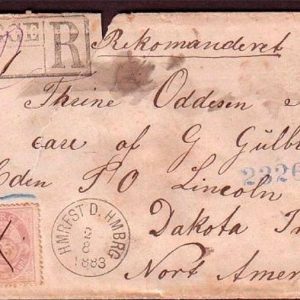 GE
R
Rekomanderet
Thrine Oddesen
care of G Gülbr
2326
Eden P O Lincoln
Dakota T
Nort Amer
HMRFST D. HMBRG
2
8
1883